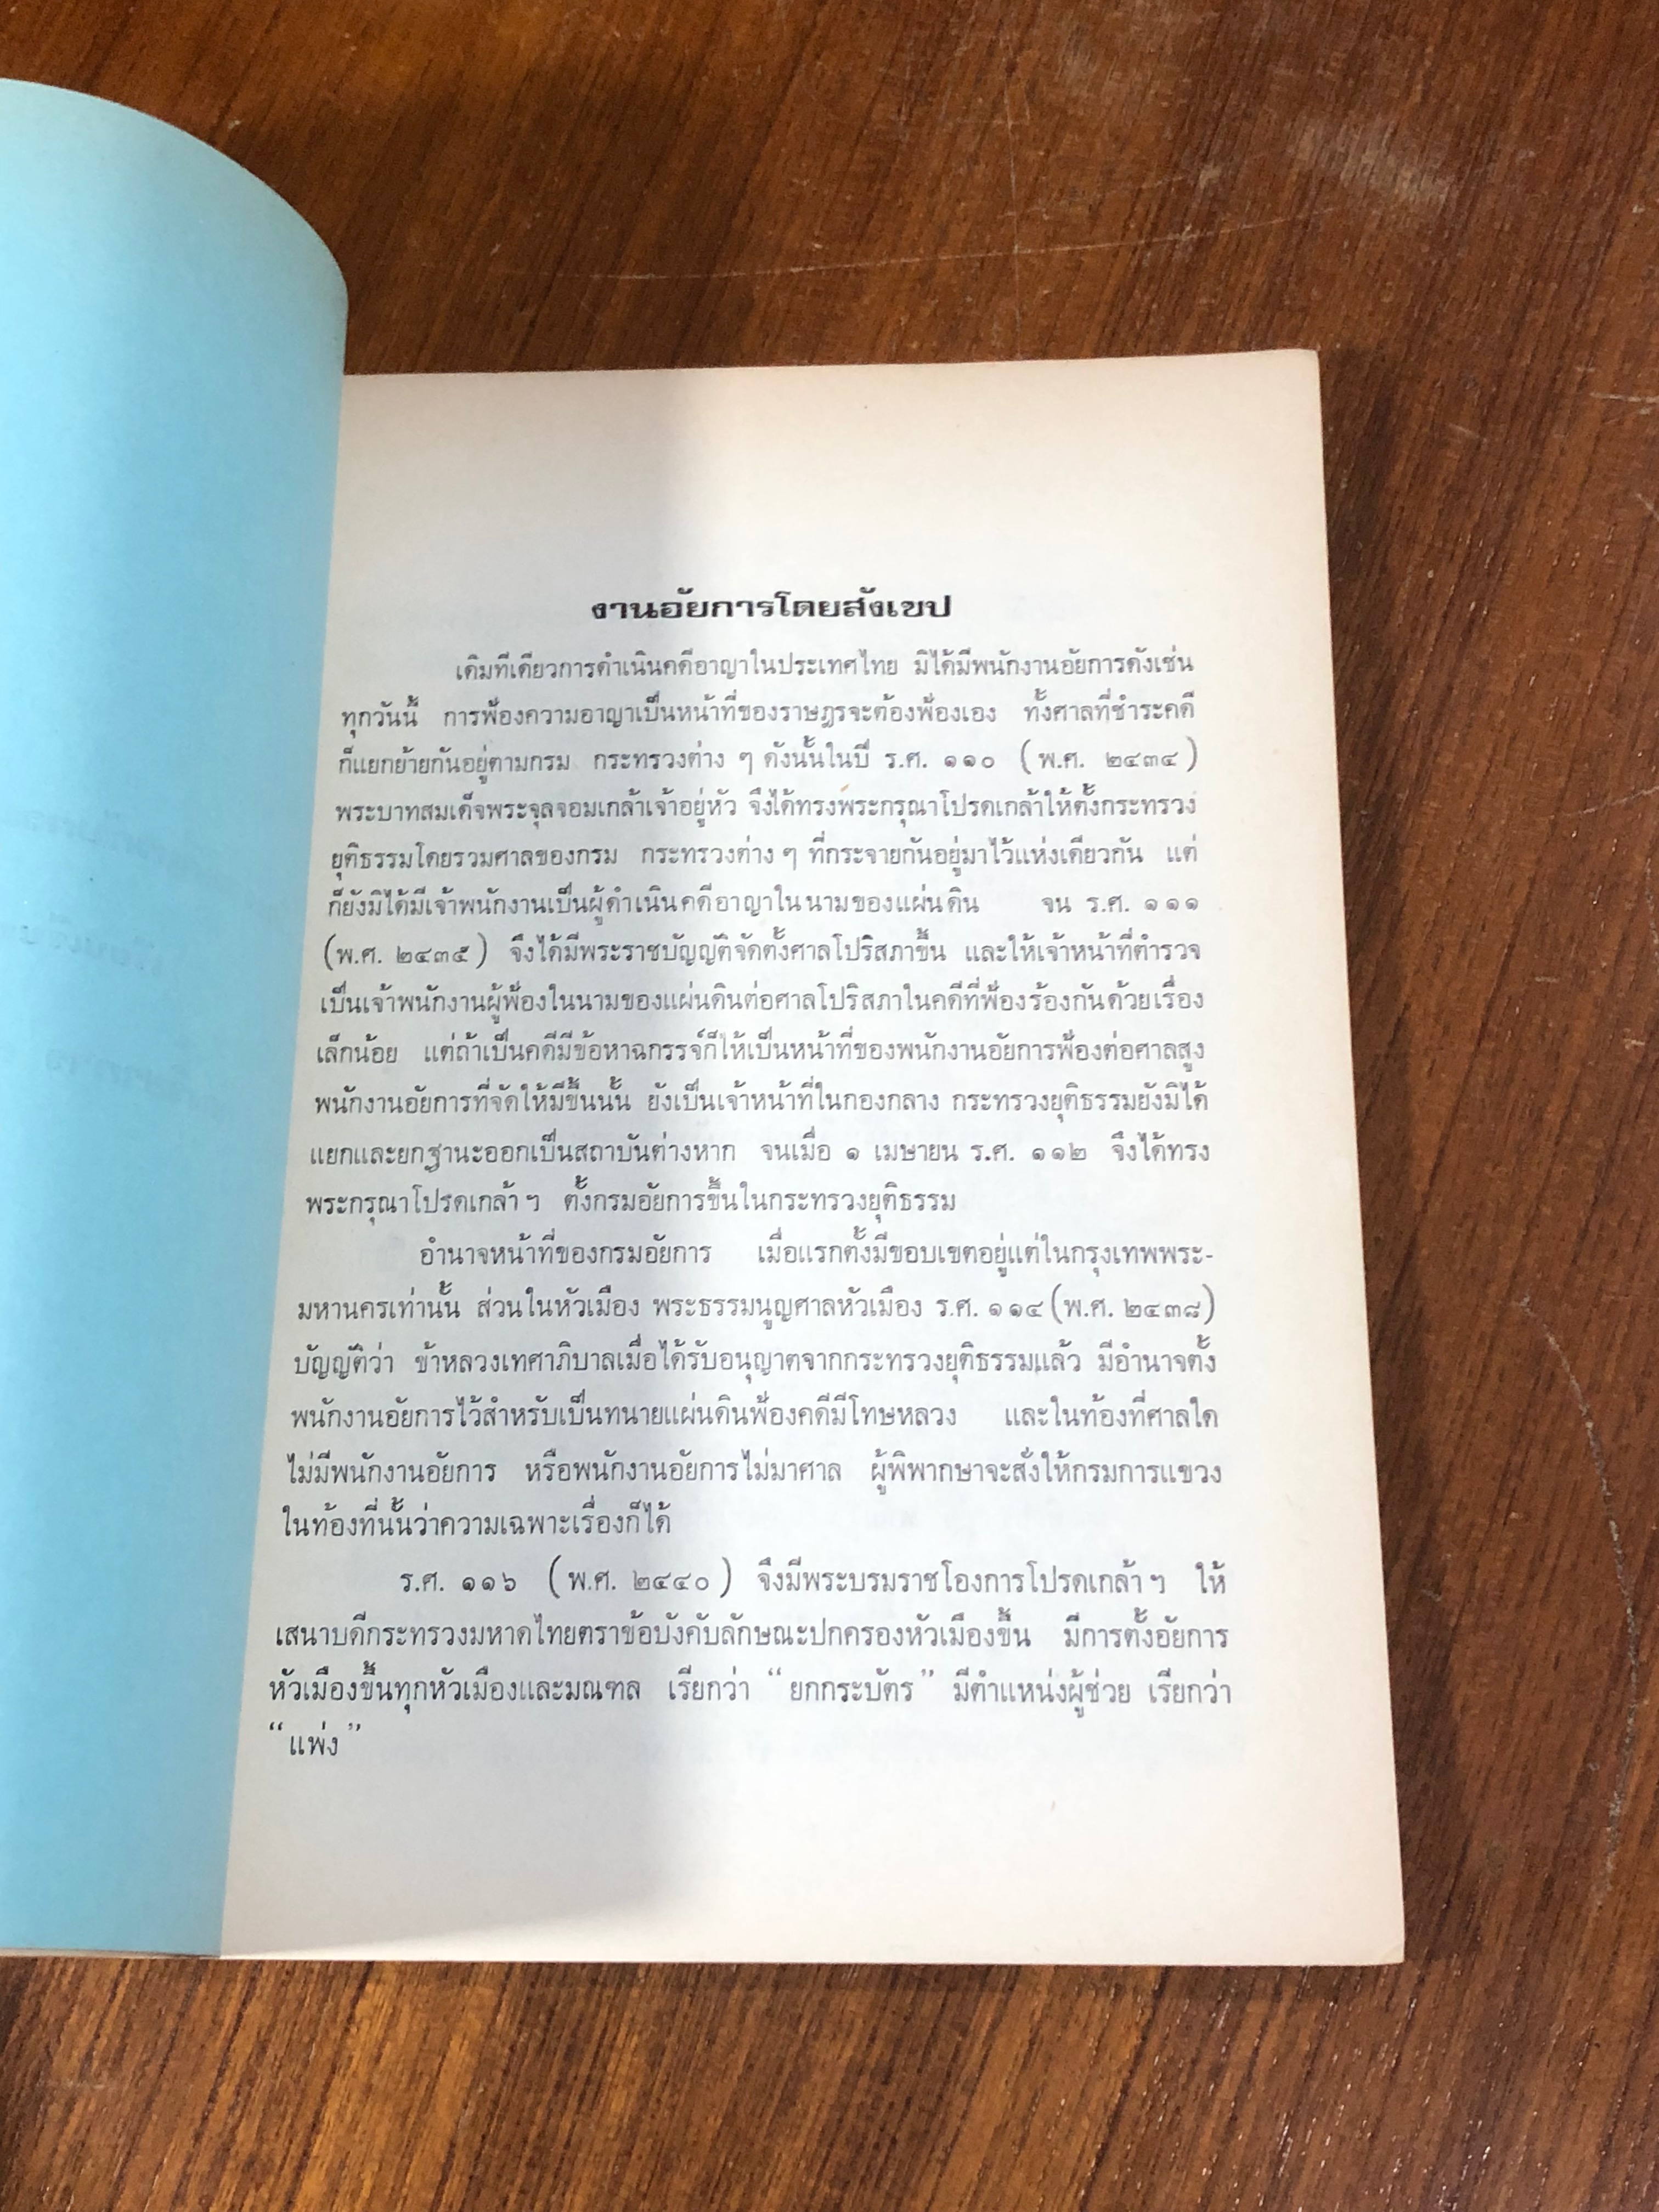 งานอัยการโดยสังเขป
เดิมทีเดียวการดำเนินคดีอาญาในประเทศไทย มิได้มีพนักงานอัยการดังเช่น
ทุกวันนี้ การฟ้องความอาญาเป็นหน้าที่ของราษฎรจะต้องฟ้องเอง ทั้งศาลที่ชำระคดี
ก็แยกย้ายกันอยู่ตามกรม กระทรวงต่าง ๆ ดังนั้นในปี ร.ศ. ๑๑๐ (พ.ศ. ๒๔๓๔)
พระบาทสมเด็จพระจุลจอมเกล้าเจ้าอยู่หัว จึงได้ทรงพระกรุณาโปรดเกล้าให้ตั้งกระทรวง
ยุติธรรมโดยรวมศาลของกรม กระทรวงต่าง ๆ ที่กระจายกันอยู่มาไว้แห่งเดียวกัน แต่
ก็ยังมิได้มีเจ้าพนักงานเป็นผู้ดำเนินคดีอาญาในนามของแผ่นดิน จน ร.ศ. ๑๑๑
(พ.ศ. ๒๔๓๕) จึงได้มีพระราชบัญญัติจัดตั้งศาลโปริสภาขึ้น และให้เจ้าหน้าที่ตำรวจ
เป็นเจ้าพนักงานผู้ฟ้องในนามของแผ่นดินต่อศาลโปริสภาในคดีที่ฟ้องร้องกันด้วยเรื่อง
เล็กน้อย แต่ถ้าเป็นคดีมีข้อหาฉกรรจ์ก็ให้เป็นหน้าที่ของพนักงานอัยการฟ้องต่อศาลสูง
พนักงานอัยการที่จัดให้มีขึ้นนั้น ยังเป็นเจ้าหน้าที่ในกองกลาง กระทรวงยุติธรรมยังมิได้
แยกและยกฐานะออกเป็นสถาบันต่างหาก จนเมื่อ ๑ เมษายน ร.ศ. ๑๑๒ จึงได้ทรง
พระกรุณาโปรดเกล้า ฯ ตั้งกรมอัยการขึ้นในกระทรวงยุติธรรม
อำนาจหน้าที่ของกรมอัยการ เมื่อแรกตั้งมีขอบเขตอยู่แต่ในกรุงเทพพระ-
มหานครเท่านั้น ส่วนในหัวเมือง พระธรรมนูญศาลหัวเมือง ร.ศ. ๑๑๔ (พ.ศ. ๒๔๓๘)
บัญญัติว่า ข้าหลวงเทศาภิบาลเมื่อได้รับอนุญาตจากกระทรวงยุติธรรมแล้ว มีอำนาจตั้ง
พนักงานอัยการไว้สำหรับเป็นทนายแผ่นดินฟ้องคดีมีโทษหลวง และในท้องที่ศาลใด
ไม่มีพนักงานอัยการ หรือพนักงานอัยการไม่มาศาล ผู้พิพากษาจะสั่งให้กรมการแขวง
ในท้องที่นั้นว่าความเฉพาะเรื่องก็ได้
ร.ศ. ๑๑๖ (พ.ศ. ๒๔๔๐) จึงมีพระบรมราชโองการโปรดเกล้า ฯ ให้
เสนาบดีกระทรวงมหาดไทยตราข้อบังคับลักษณะปกครองหัวเมืองขึ้น มีการตั้งอัยการ
หัวเมืองขึ้นทุกหัวเมืองและมณฑล เรียกว่า “ยกกระบัตร” มีตำแหน่งผู้ช่วย เรียกว่า
“แพ่ง”